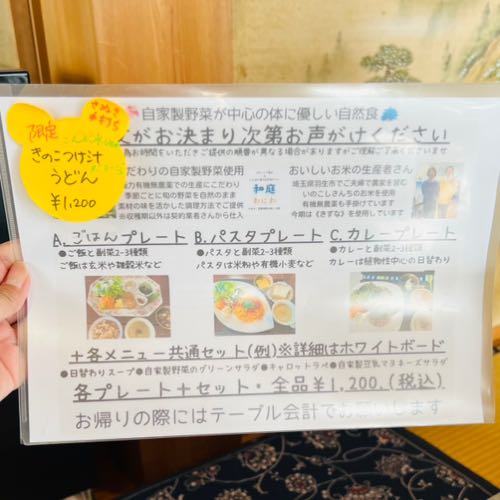 自家製野菜が中心の体に優しい自然食
がお決まり次第お声がけください
お時間をいただきご提供の順番が異なる場合がありますがご理解ご了承くださいませ
限定
きのこつけ汁
うどん
¥1,200
だわりの自家製野菜使用
力有機無農薬での生産にこだわり
季節ごとに旬の野菜を自然のまま
素材の味を活かした調理方法でご提供
※収穫期以外は契約業者さんから仕入
和庭
わにわ
おいしいお米の生産者さん
埼玉県羽生市でご夫婦で農家を営む
いのこしさんちのお米を使用
有機無農薬も手掛けています
今期は《きずな》を使用しています
A. ごはんプレート
●ご飯と副菜2~3種類
ご飯は玄米や雑穀米など
B. パスタプレート
●パスタと副菜2~3種類
パスタは米粉や有機小麦など
C. カレープレート
●カレーと副菜2~3種類
カレーは植物性中心の日替わり
+各メニュー共通セット(例)※詳細はホワイトボード
●日替わりスープ●自家製野菜のグリーンサラダ●キャロットラペ●自家製豆乳マヨネーズサラダ
各プレート+セット・全品¥1,200.(税込)
お帰りの際にはテーブル会計でお願いします